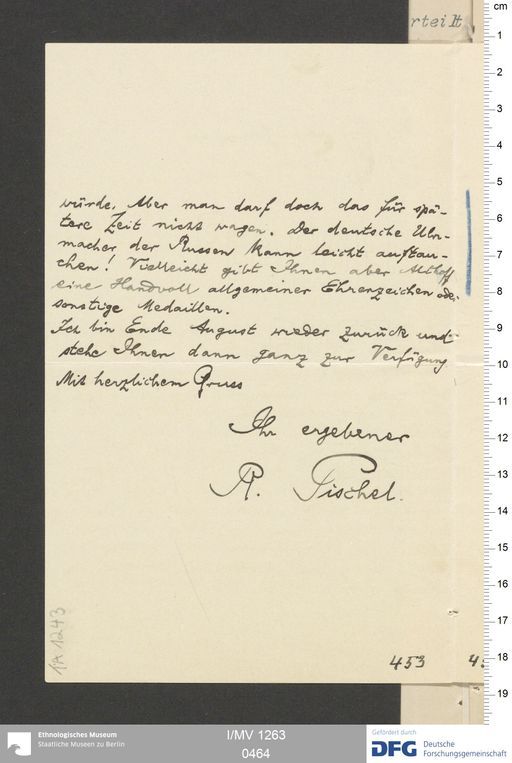 rteilt
würde. Aber man darf doch das für spä-
tere Zeit nicht wagen. Der deutsche Uhr-
macher der Russen kann leicht auftau-
chen! Vielleicht gibt Ihnen aber Althoff
eine Handvoll allgemeiner Ehrenzeichen oder
sonstige Medaillen.
Ich bin Ende August wieder zurück und
stehe Ihnen dann ganz zur Verfügung
Mit herzlichem Gruss
Ihr ergebener
R. Pischel.
IA 1243
453
4.
cm
1
2
3
4
5
6
7
8
9
10
11
12
13
14
15
16
17
18
19
Ethnologisches Museum
Staatliche Museen zu Berlin
I/MV 1263
0464
Gefördert durch
DFG Deutsche
Forschungsgemeinschaft